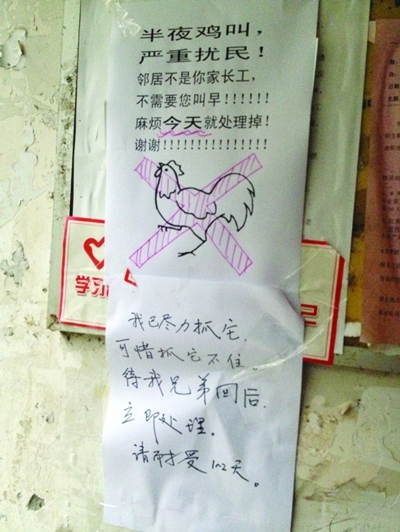 半夜鸡叫，
严重扰民！
邻居不是你家长工，
不需要您叫早！！！！！！
麻烦今天就处理掉！
谢谢！！！！！！！！！！！！！！！
学习
我已尽力抓它，
可惜抓它不住。
待我兄弟回后，
立即处理。
请耐受1、2天。